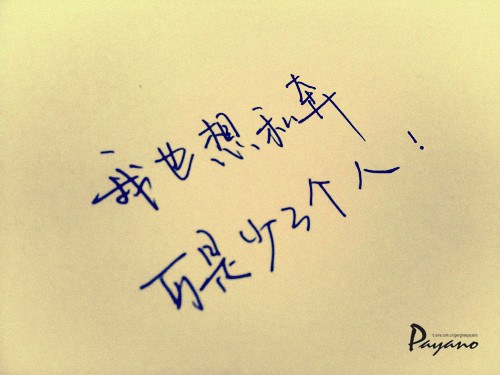 我也想私奔
可是少了个人!
Payano